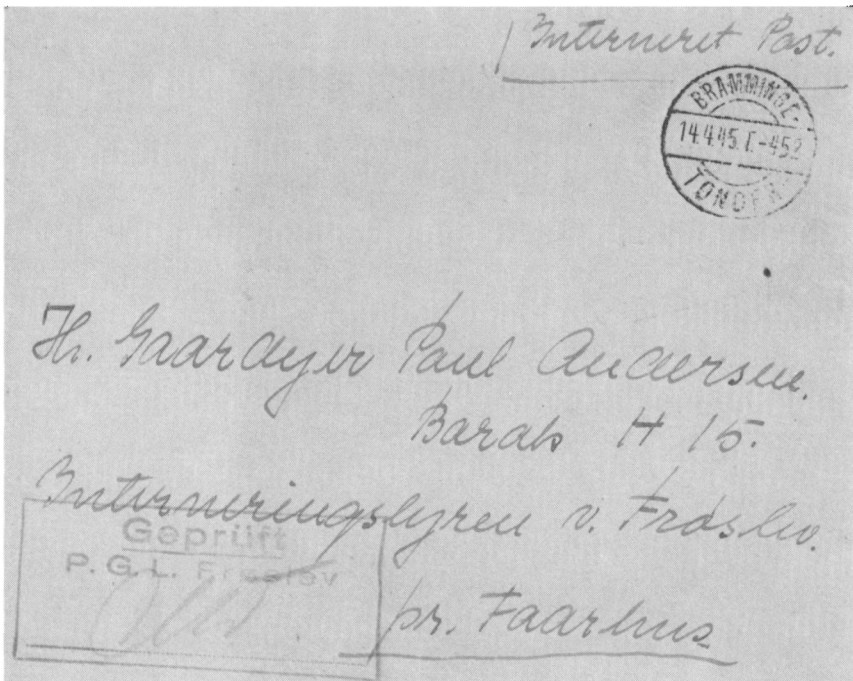 Interneret Post.
BRAMMINGE-
14.4.45. T.-952
TØNDER
Hr. Gaardejer Paul Andersen.
Barak H 15.
Interneringslejren v. Frøslev.
Geprüft
P. G. L. Froeslev
pr. Faarhus